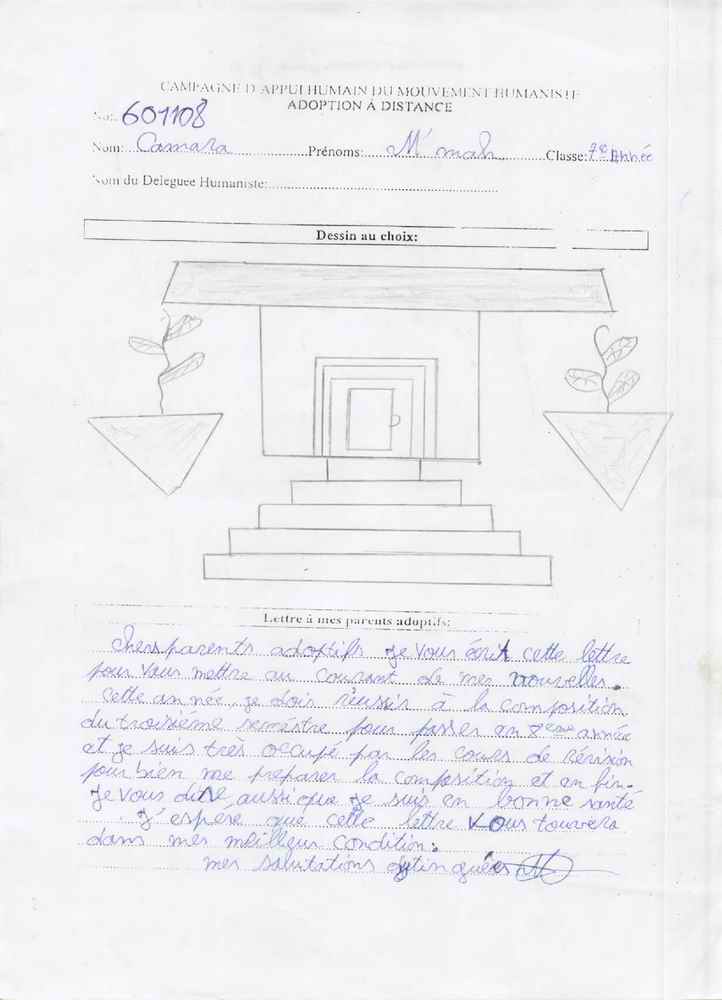 CAMPAGNE D'APPUI HUMAIN DU MOUVEMENT HUMANISTE
ADOPTION À DISTANCE
No: 601108
Nom: Camara Prénoms: M'mah Classe: 7e Année
Nom du Deleguee Humaniste:
Dessin au choix:
Lettre à mes parents adoptifs:
Chers parents adoptifs je vous écrit cette lettre
pour vous mettre au courant de mes nouvelles.
Cette année, je dois réussir à la composition
du troisième seméstre pour passer en 8eme année
et je suis très occupé par les cours de révision
pour bien me preparer la composition et en fin.
Je vous dire, aussi que je suis en bonne santé
J'espère que cette lettre vous touvera
dans mes meilleur condition.
mes salutations